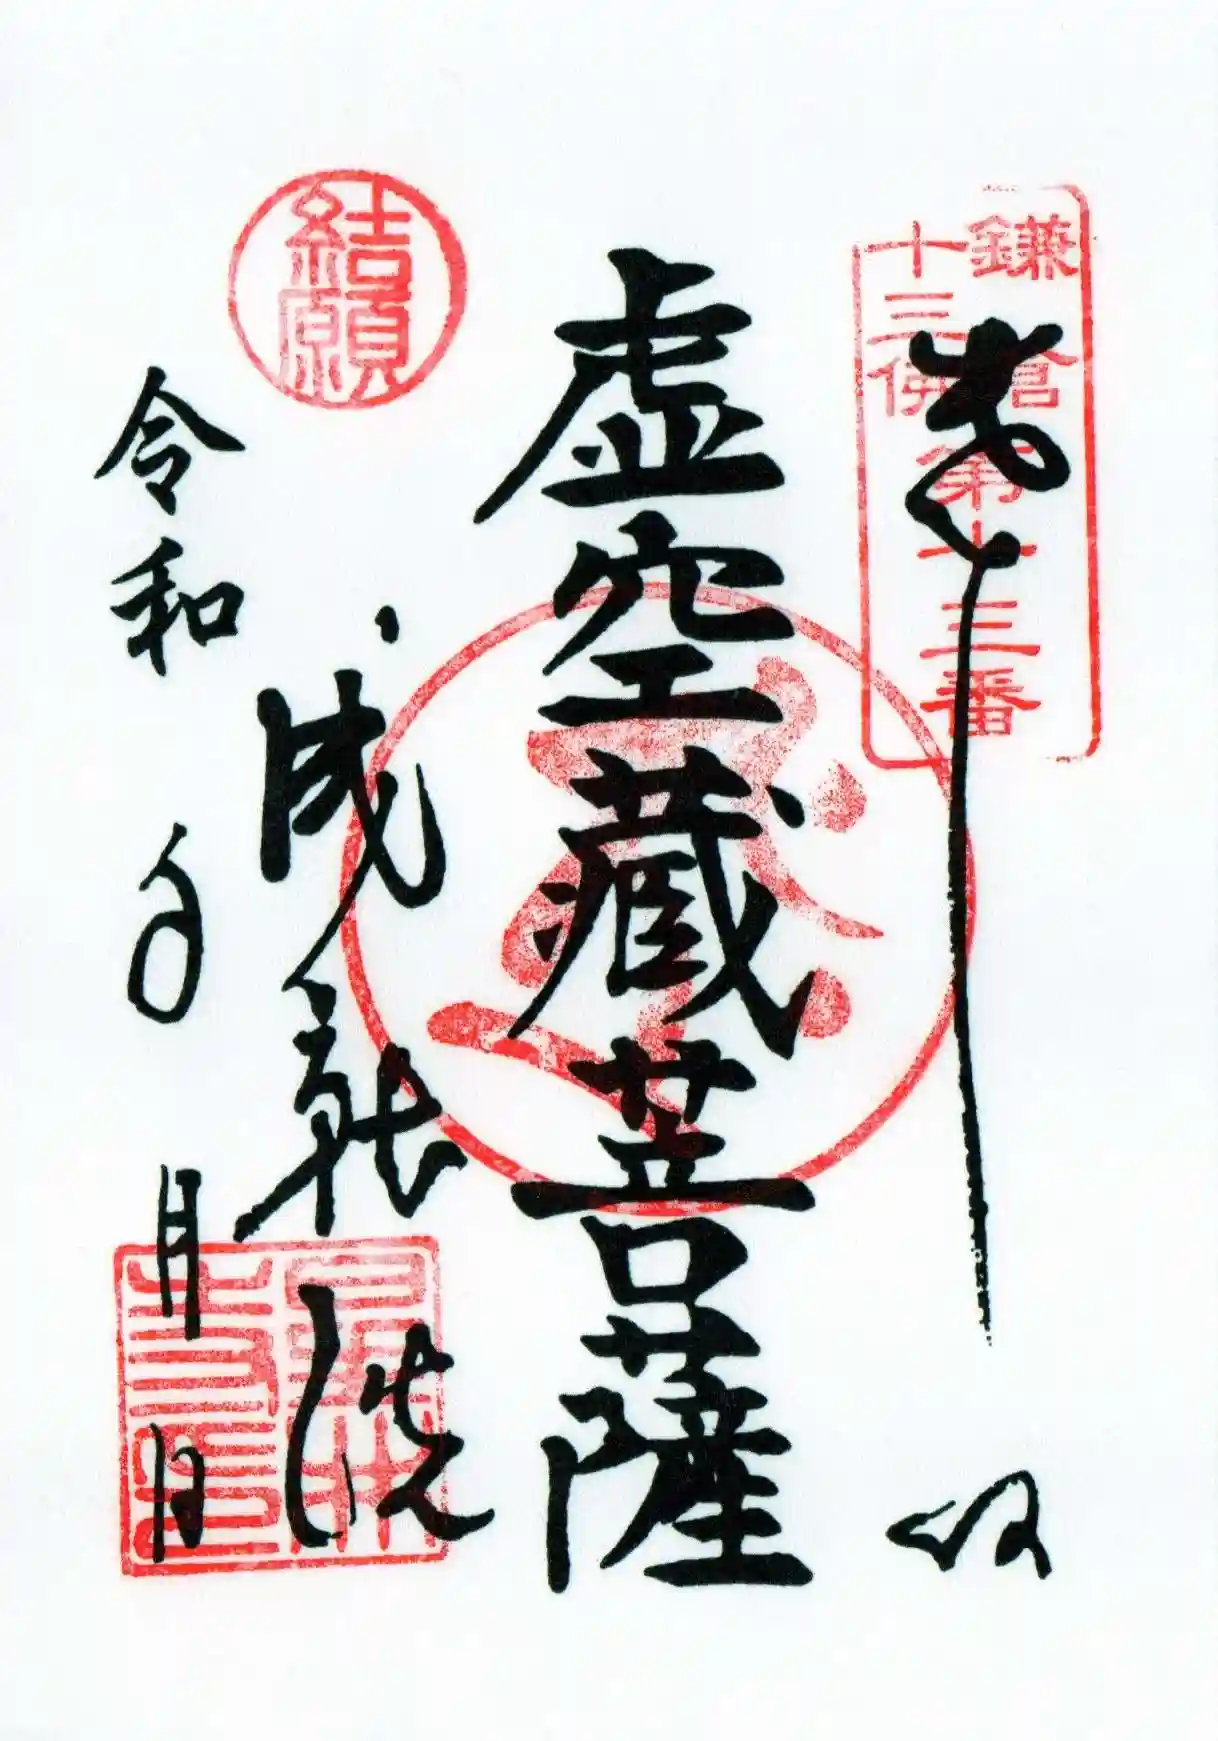 鎌倉
十三佛
第十三番
奉拝
虚空蔵菩薩
結願
成就院
令和 年 月 日
星井
寺印